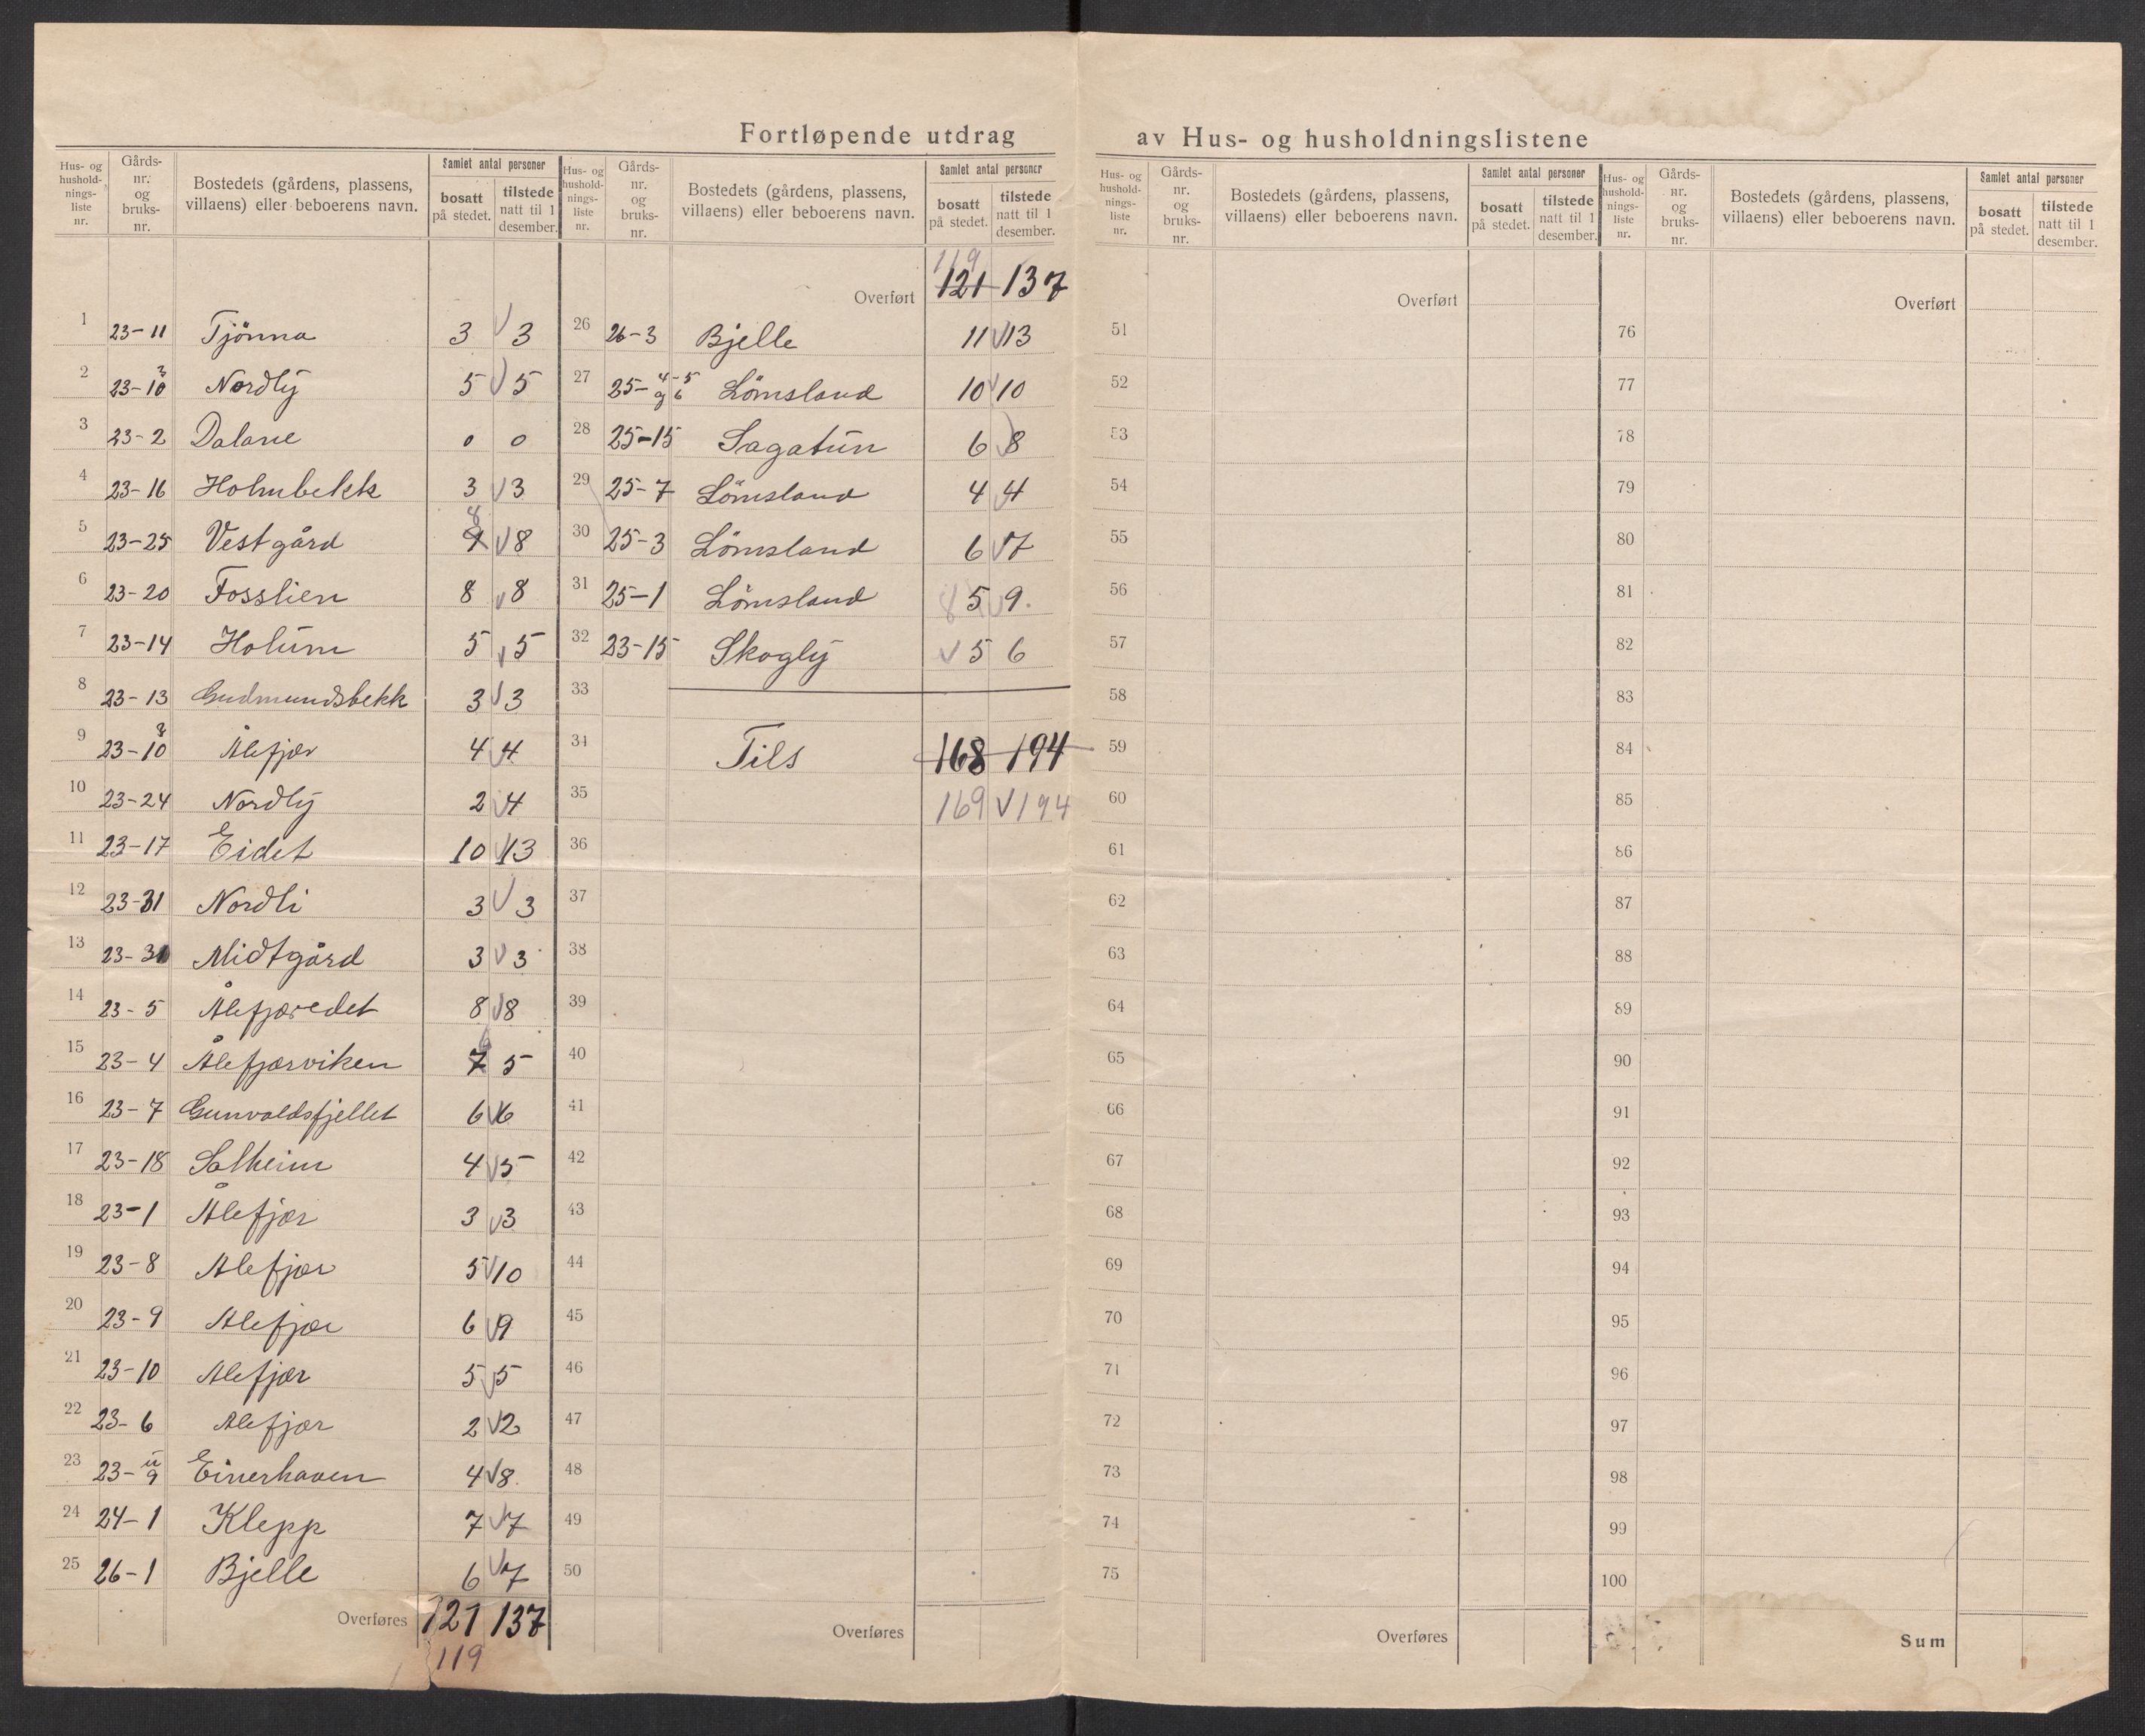 Fortløpende utdrag av Hus- og husholdningslistene
Hus- og hushold-nings-liste nr. Gårds-nr. og bruks-nr. Bostedets (gårdens, plassens, villaens) eller beboerens navn. Samlet antal personer bosatt på stedet. tilstede natt til 1 desember.
1 23-11 Tjönna 3 3
2 23-10 3 Nordly 5 5
3 23-2 Dalane 0 0
4 23-16 Holmbekk 3 3
5 23-25 Vestgård 9 8 8
6 23-20 Fosslien 8 8
7 23-14 Holum 5 5
8 23-13 Gudmundsbekk 3 3
9 23-10 8 Ålefjær 4 4
10 23-24 Nordly 2 4
11 23-17 Eidet 10 13
12 23-31 Nordli 3 3
13 23-30 Midtgård 3 3
14 23-5 Ålefjæredet 8 8
15 23-4 Ålefjærviken 7 6 5
16 23-7 Gunvaldsfjellet 6 6
17 23-18 Solheim 4 5
18 23-1 Ålefjær 3 3
19 23-8 Alefjær 5 10
20 23-9 Alefjær 6 9
21 23-10 Alefjær 5 5
22 23-6 Alefjær 2 2
23 23-9 Einerhaven 4 8
24 24-1 Klepp 7 7
25 26-1 Bjelle 6 7
Overføres 121 137
119
Hus- og hushold-nings-liste nr. Gårds-nr. og bruks-nr. Bostedets (gårdens, plassens, villaens) eller beboerens navn. Samlet antal personer bosatt på stedet. tilstede natt til 1 desember.
119
Overført 121 137
26 26-3 Bjelle 11 13
27 25-4-5 og 6 Lömsland 10 10
28 25-15 Sagatun 6 8
29 25-7 Lömsland 4 4
30 25-3 Lömsland 6 7
31 25-1 Lömsland 8 5 9.
32 23-15 Skogly 5 6
33
34 Tils 168 194
35 169 194
36
37
38
39
40
41
42
43
44
45
46
47
48
49
50
Overføres
Hus- og hushold-nings-liste nr. Gårds-nr. og bruks-nr. Bostedets (gårdens, plassens, villaens) eller beboerens navn. Samlet antal personer bosatt på stedet. tilstede natt til 1 desember.
Overført
51
52
53
54
55
56
57
58
59
60
61
62
63
64
65
66
67
68
69
70
71
72
73
74
75
Overføres
Hus- og hushold-nings-liste nr. Gårds-nr. og bruks-nr. Bostedets (gårdens, plassens, villaens) eller beboerens navn. Samlet antal personer bosatt på stedet. tilstede natt til 1 desember.
Overført
76
77
78
79
80
81
82
83
84
85
86
87
88
89
90
91
92
93
94
95
96
97
98
99
100
Sum